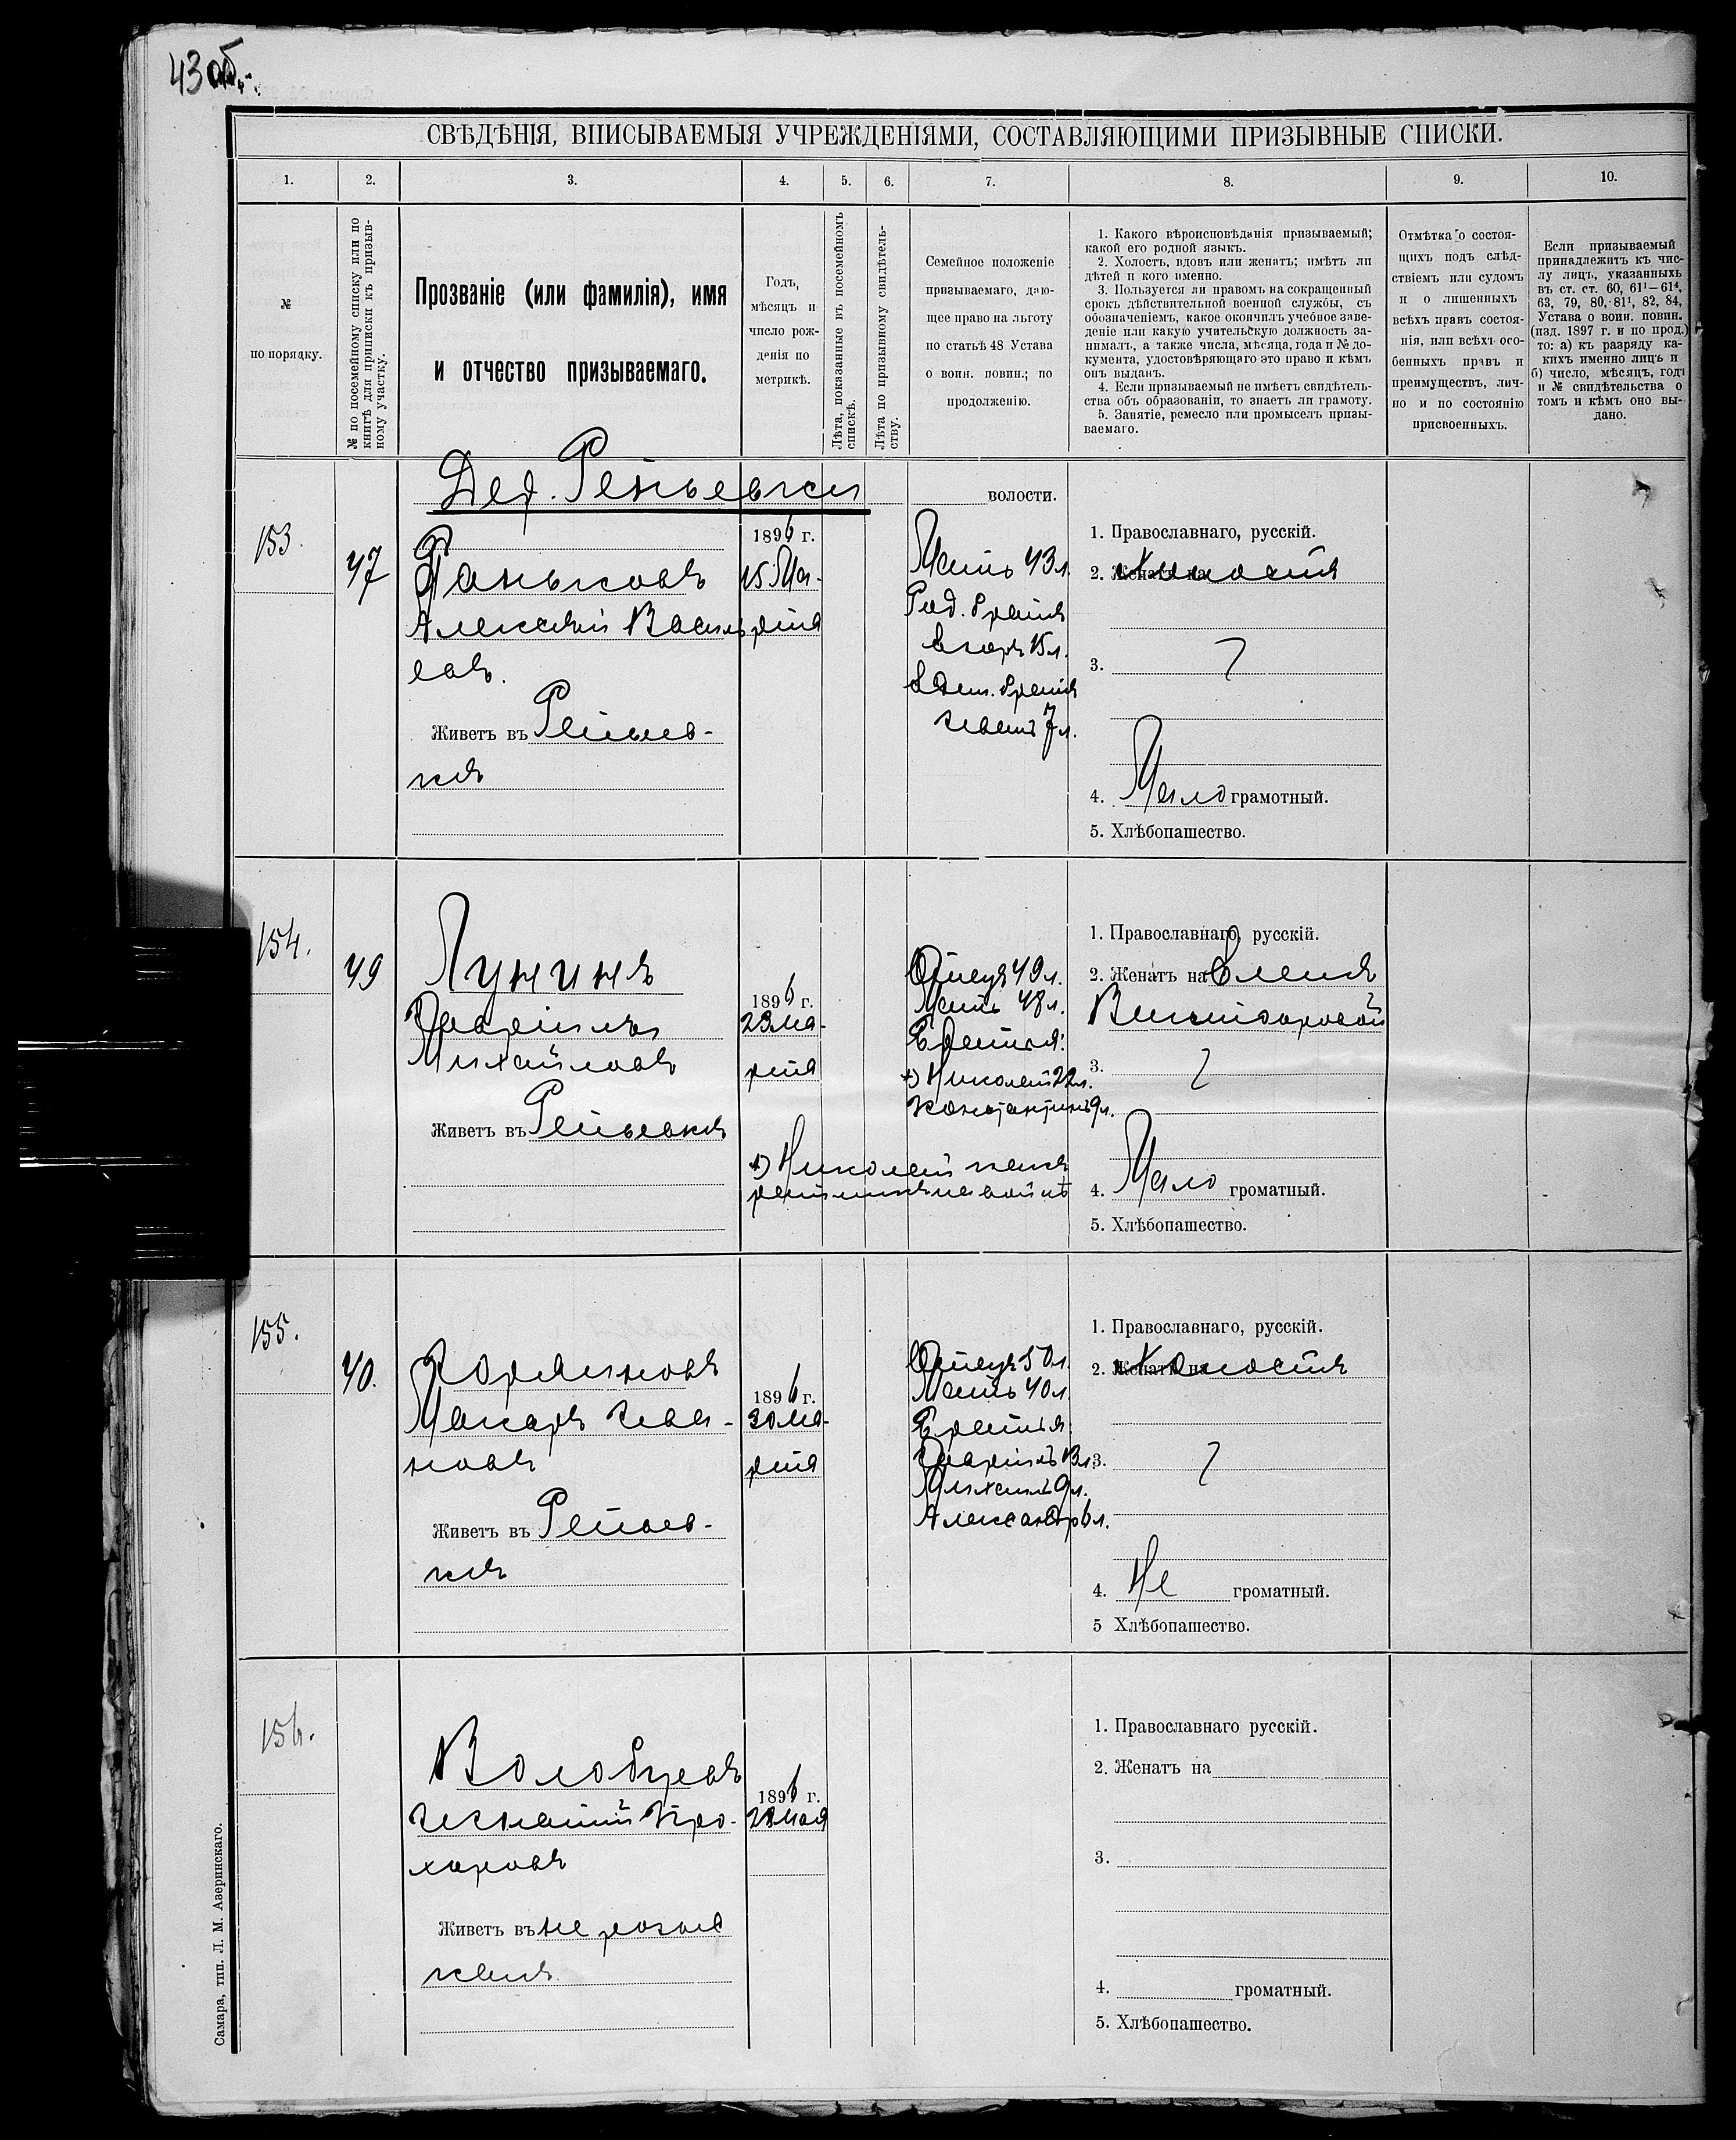 43 об.
СВѢДѢНІЯ, ВПИСЫВАЕМЫЯ УЧРЕЖДЕНІЯМИ, СОСТАВЛЯЮЩИМИ ПРИЗЫВНЫЕ СПИСКИ.
1.
2.
3.
4.
5.
6.
7.
8.
9.
10.
№
по порядку.
№ по посемейному списку или по
книгѣ для приписки къ призыв-
ному участку.
Прозваніе (или фамилія), имя
и отчество призываемаго.
Годъ,
мѣсяцъ и
число рож-
денія по
метрикѣ.
Лѣта, показанные въ посемейномъ
спискѣ.
Лѣта по призывному свидѣтель-
ству.
Семейное положеніе
призываемаго, даю-
щее право на льготу
по статьѣ 48 Устава
о воин. повин.; по
продолженію.
1. Какого вѣроисповѣданія призываемый;
какой его родной языкъ.
2. Холостъ, вдовъ или женатъ; имѣтъ ли
дѣтей и кого именно.
3. Пользуется ли правомъ на сокращенный
срокъ дѣйствительной военной службы, съ
обозначеніемъ, какое окончилъ учебное заве-
деніе или какую учительскую должность за-
нималъ, а также числа, мѣсяца, года и № до-
кумента, удостовѣряющаго это право и кѣмъ
онъ выданъ.
4. Если призываемый не имѣетъ свидѣтель-
ства объ образованіи, то знаетъ ли грамоту.
5. Занятіе, ремесло или промыселъ призы-
ваемаго.
Отмѣтка о состоя-
щихъ подъ слѣд-
ствіемъ или судомъ
и о лишенныхъ
всѣхъ правъ состоя-
нія, или всѣхъ осо-
бенныхъ правъ и
преимуществъ, лич-
но и по состоянію
присвоенныхъ.
Если призываемый
принадлежитъ къ чис-
лу лицъ, указанныхъ
въ ст. ст. 60, 61¹—61⁴,
63, 79, 80, 81¹, 82, 84,
Устава о воин. повин.
(изд. 1897 г. и по прод.)
то: а) къ разряду ка-
кихъ именно лицъ и
б) число, мѣсяцъ, годъ
и № свидѣтельства о
томъ и кѣмъ оно вы-
дано.
Дер. Рѣпьевки
волости.
153.
47
Паньковъ
Алексѣй Василь
евъ.
Живетъ въ Репьев-
кѣ
1896 г.
15 Ма-
рта
Мать 43 л.
Род. братъ
Егоръ 15 л.
братъ
Иванъ 7 л.
1. Православнаго, русскій.
2. Женатъ на Холостъ
3.
4. Мало грамотный.
5. Хлѣбопашество.
154.
49
Лунинъ
Гавріилъ
Михайловъ
Живетъ въ Репьевкѣ
1896 г.
23 Ма-
рта
Отецъ 49 л.
Мать 48 л.
Братья:
+) Николай 22 л.
Константинъ 9 л.
+) Николай
на войнѣ
1. Православнаго, русскій.
2. Женатъ на Еленѣ
Викторовой
3.
4. Мало громатный.
5. Хлѣбопашество.
155.
40.
Горяиновъ
Макаръ Ива-
новъ
Живетъ въ Репьев-
кѣ
1896 г.
30 Ма-
рта
Отецъ 50 л.
Мать 40 л.
Братья:
Гавріилъ 13 л.
Михаилъ 9 л.
Александръ 6 л.
1. Православнаго, русскій.
2. Женатъ на Холостъ
3.
4. Не громатный.
5 Хлѣбопашество.
156.
Волобуевъ
Игнатій Про-
хоровъ
Живетъ въ не розыс
канъ
1896 г.
23 Мая
1. Православнаго русскій.
2. Женатъ на
3.
4. громатный.
5. Хлѣбопашество.
Самара, тип. Л. М. Азеринскаго.